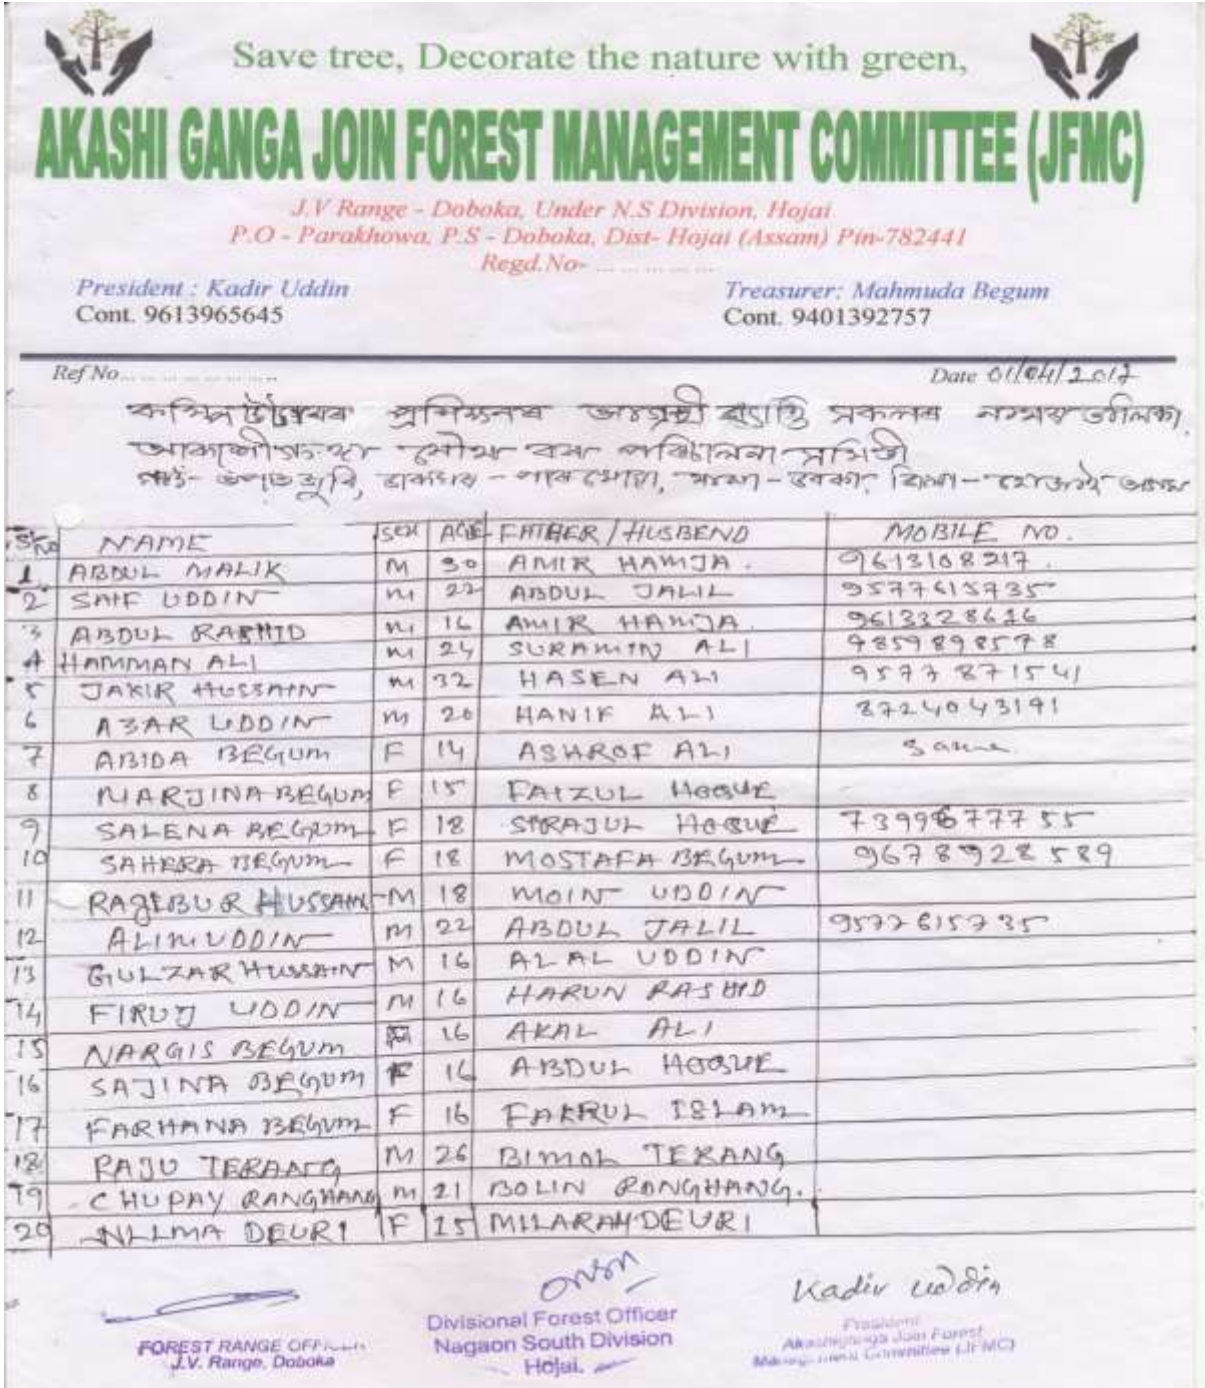 Save tree, Decorate the nature with green,
AKASHI GANGA JOIN FOREST MANAGEMENT COMMITTEE (JFMC)
J.V Range - Doboka, Under N.S Division, Hojai
P.O - Parakhowa, P.S - Doboka, Dist- Hojai (Assam) Pin-782441
Regd.No- ... ... ... ... ...
President : Kadir Uddin
Treasurer: Mahmuda Begum
Cont. 9613965645
Cont. 9401392757
Ref No... ... ... ... ... ... ...
Date 01/04/2017
প্ৰশিক্ষনৰ সকলৰ তালিকা
বন পৰিচালনা সমিতী
S/No NAME SEX AGE FATHER / HUSBEND MOBILE NO.
1 ABDUL MALIK M 30 AMIR HAMJA. 9613108217.
2 SAIF UDDIN M 22 ABDUL JALIL 9577615735
3 ABDUL RASHID M 16 AMIR HAMJA. 9613328616
4 HAMMAN ALI M 24 SURAMIN ALI 9859898578
5 JAKIR HUSSAIN M 32 HASEN ALI 9577871541
6 AZAR UDDIN M 20 HANIF ALI 8724043191
7 ABIDA BEGUM F 14 ASHROF ALI Same
8 MARJINA BEGUM F 15 FAIZUL HOQUE
9 SALENA BEGUM F 18 SIRAJUL HOQUE 7399677755
10 SAHERA BEGUM F 18 MOSTAFA BEGUM 9678928589
11 RAJIBUR HUSSAIN M 18 MOIN UDDIN
12 ALIMUDDIN M 22 ABDUL JALIL 9577615735
13 GULZAR HUSSAIN M 16 ALAL UDDIN
14 FIRUJ UDDIN M 16 HARUN RASHID
15 NARGIS BEGUM F 16 AKAL ALI
16 SAJINA BEGUM F 16 ABDUL HOQUE
17 FARHANA BEGUM F 16 FAKRUL ISLAM
18 RAJU TERANG M 26 BIMOL TERANG
19 CHUPAY RANGHANG M 21 BOLIN RONGHANG.
20 NILMA DEURI F 25 MILARAM DEURI
Kadir uddin
FOREST RANGE OFFICER
J.V. Range, Doboka
Divisional Forest Officer
Nagaon South Division
Hojai.
President
Akashiganga Join Forest
Management Committee (JFMC)